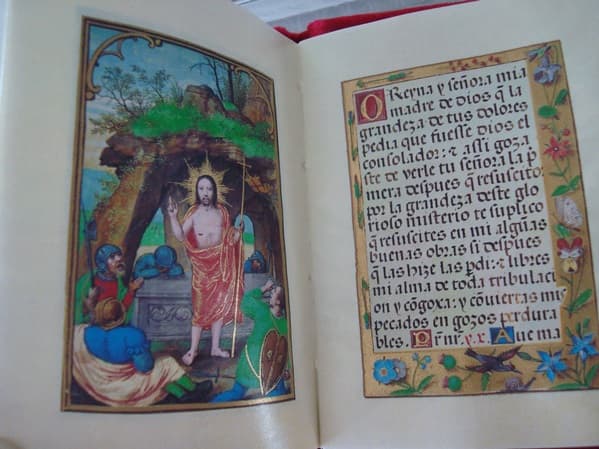 O Reyna y señora mia
madre de dios q̃ la
grandeza de tus dolores
pedia que fuesse dios el
consolador: ⁊ assi goza
ste de verle tu señora la p̃
mera despues q̃ resuscito:
por la grandeza deste glo
rioso misterio te suplico
q̃ resuscites en mi algũas
buenas obras si despues
q̃ las hize las p̃di: ⁊ libres
mi alma de toda tribulaci
on y cõgoxa: y cõuiertas mis
pecados en gozos perdura
bles. Aue ma